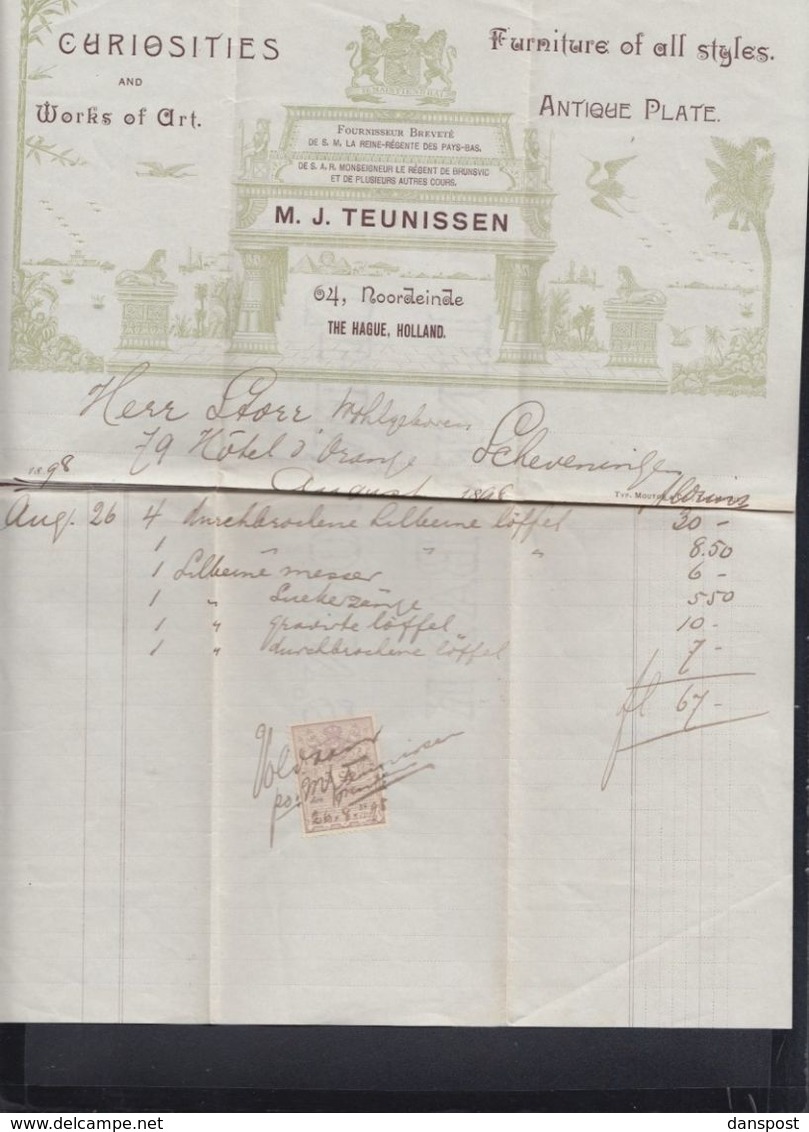 CURIOSITIES
AND
Works of Art.
Furniture of all styles.
ANTIQUE PLATE.
JE MAINTIENDRAI
FOURNISSEUR BREVETÉ
DE S. M. LA REINE-RÉGENTE DES PAYS-BAS.
DE S. A. R. MONSEIGNEUR LE RÉGENT DE BRUNSVIC
ET DE PLUSIEURS AUTRES COURS.
M. J. TEUNISSEN
64, Noordeinde
THE HAGUE, HOLLAND.
Herr Storr Wohlgeboren
79 Hôtel d'Orange Scheveningen
August 1898
1898
Aug. 26 4 durchbrochene Silberne löffel 30 -
1 " " 8.50
1 Silberne messer 6 -
1 " Zuckerzange 5 50
1 " gravirte löffel 10 -
1 " durchbrochene löffel 7 -
fl 67 -
Voldaan
po: M J Teunissen
26.8.98
danspost